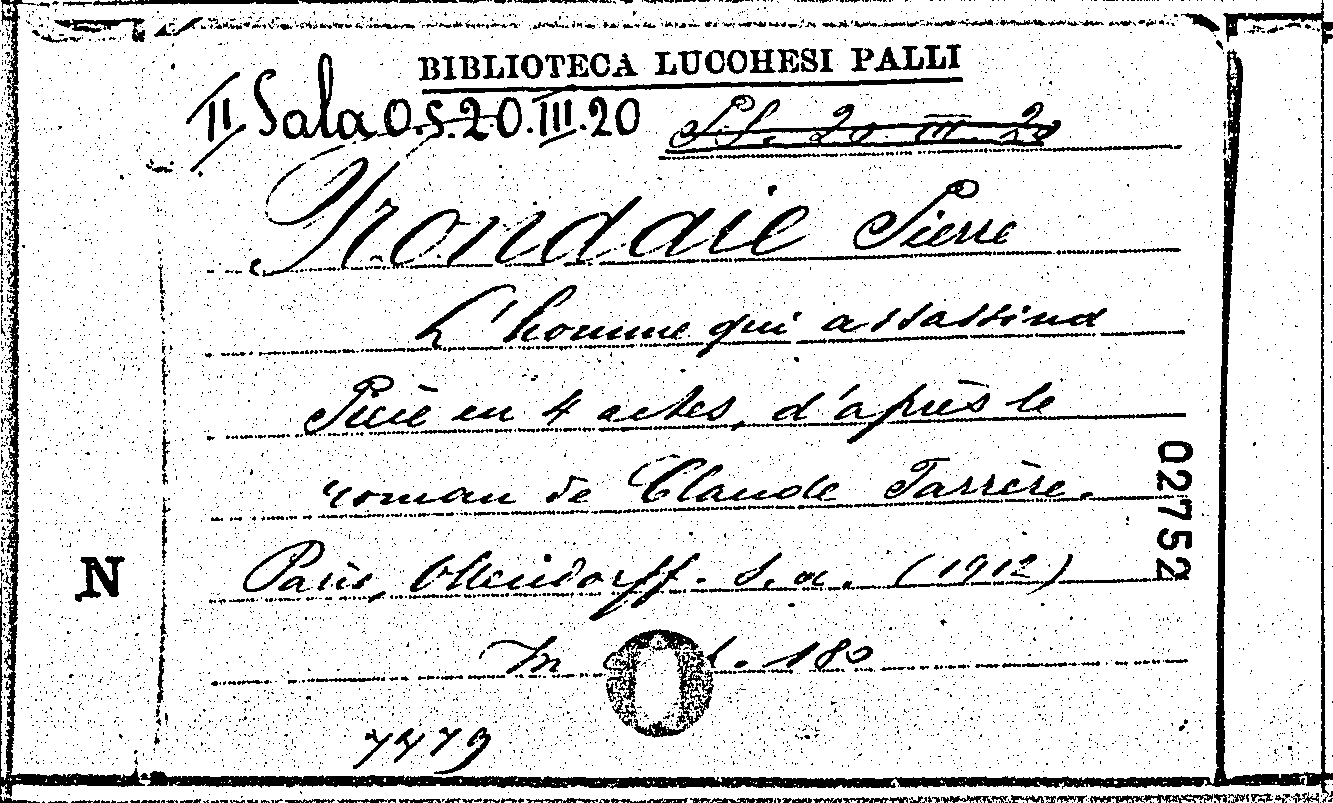 BIBLIOTECA LUCCHESI PALLI
II Sala O.S.20.III.20
Frondaie Pierre
L'homme qui assassina
Pièce en 4 actes, d'après le
roman de Claude Farrère.
Paris, Ollendorff. S.a. (1912)
In 180
7479
N
02752